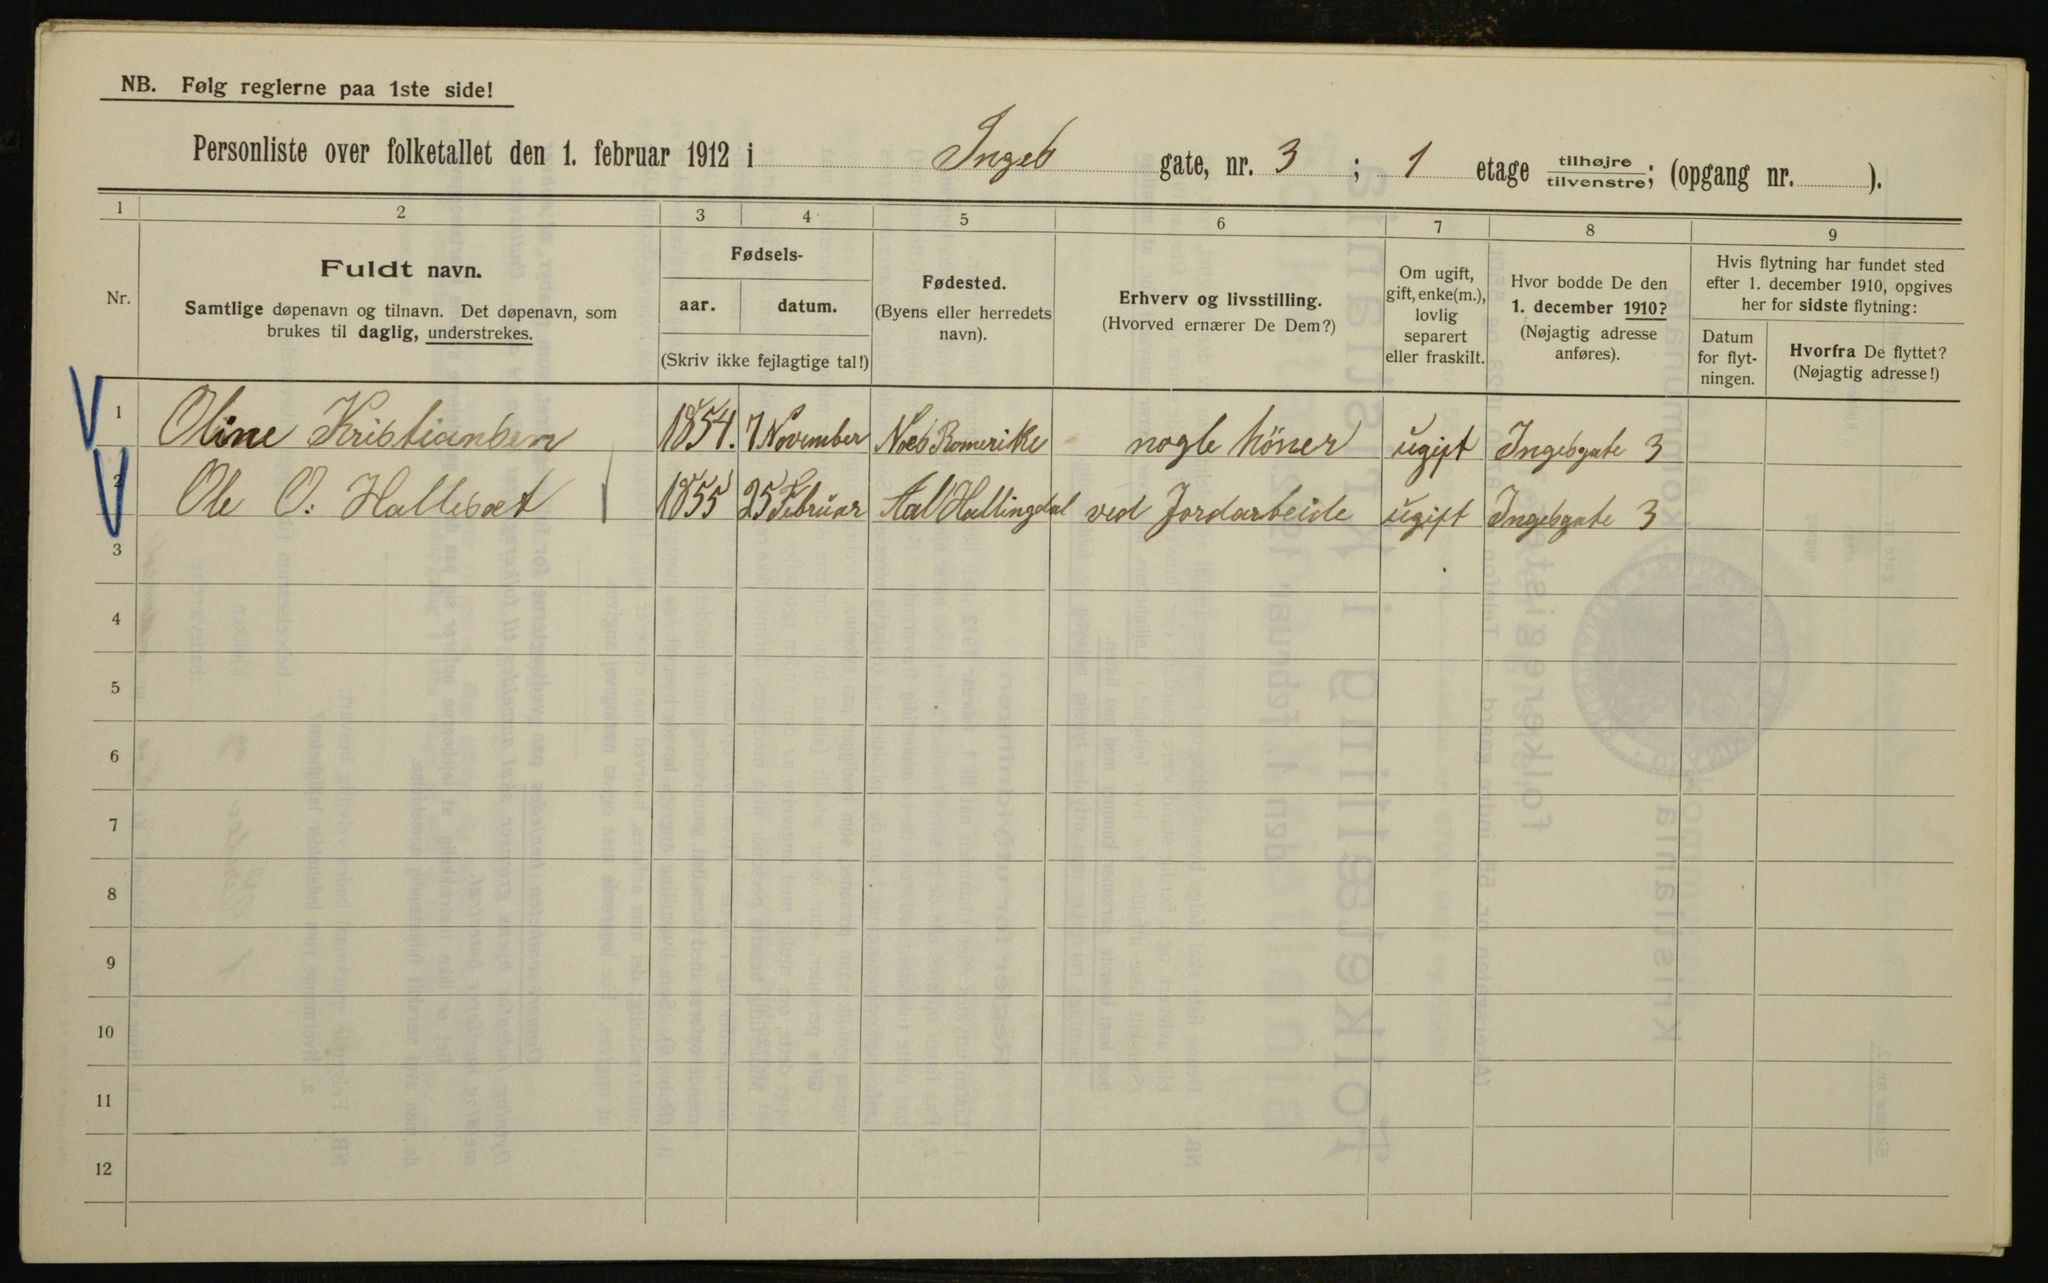 NB. Følg reglerne paa 1ste side!
Personliste over folketallet den 1. februar 1912 i Ingeb gate, nr. 3 ; 1 etage tilhøjre/tilvenstre; (opgang nr. ).
1 2 3 4 5 6 7 8 9
Nr.
Fuldt navn.
Samtlige døpenavn og tilnavn. Det døpenavn, som
brukes til daglig, understrekes.
Fødsels-
aar. datum.
(Skriv ikke fejlagtige tal!)
Fødested.
(Byens eller herredets
navn).
Erhverv og livsstilling.
(Hvorved ernærer De Dem?)
Om ugift,
gift, enke(m.),
lovlig
separert
eller fraskilt.
Hvor bodde De den
1. december 1910?
(Nøjagtig adresse
anføres).
Hvis flytning har fundet sted
efter 1. december 1910, opgives
her for sidste flytning:
Datum
for flyt-
ningen.
Hvorfra De flyttet?
(Nøjagtig adresse!)
1 Oline Kristiansen 1854. 7 November Nes Romerike nogle höner ugift Ingebgate 3
2 Ole O. Hallesæt 1855 25 Februar Aal Hallingdal ved Jordarbeide ugift Ingebgate 3
3
4
5
6
7
8
9
10
11
12